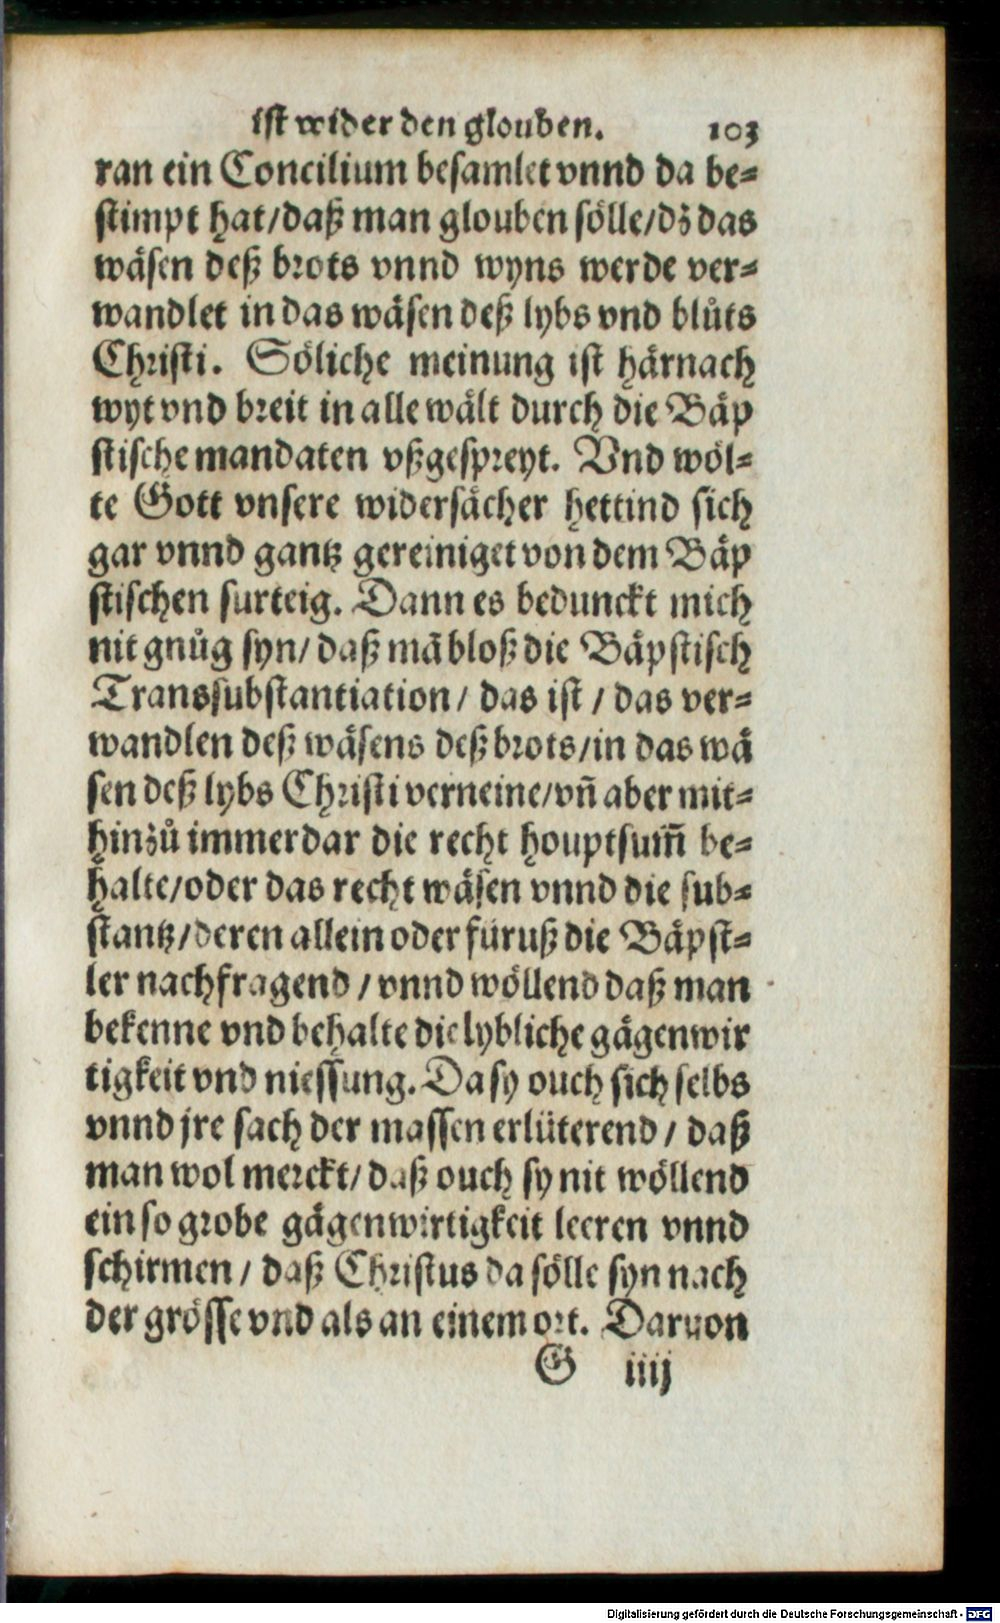 ist wider den glouben. 103
ran ein Concilium besamlet vnnd da be⸗
stimpt hat/daß man glouben sölle/dz das
wäsen deß brots vnnd wyns werde ver⸗
wandlet in das wäsen deß lybs vnd blůts
Christi. Söliche meinung ist härnach
wyt vnd breit in alle wält durch die Bäp
stische mandaten vßgespreyt. Vnd wöl⸗
te Gott vnsere widersächer hettind sich
gar vnnd gantz gereiniget von dem Bäp
stischen surteig. Dann es bedunckt mich
nit gnůg syn/ daß mā bloß die Bäpstisch
Transsubstantiation/ das ist / das ver⸗
wandlen deß wäsens deß brots/in das wä
sen deß lybs Christi verneine/vn̄ aber mit⸗
hinzů immerdar die recht houptsum̄ be⸗
halte/oder das recht wäsen vnnd die sub⸗
stantz/deren allein oder füruß die Bäpst⸗
ler nachfragend / vnnd wöllend daß man
bekenne vnd behalte die lybliche gägenwir
tigkeit vnd niessung. Da sy ouch sich selbs
vnnd jre sach der massen erlüterend / daß
man wol merckt/ daß ouch sy nit wöllend
ein so grobe gägenwirtigkeit leeren vnnd
schirmen / daß Christus da sölle syn nach
der grösse vnd als an einem ort. Daruon
G iiij
Digitalisierung gefördert durch die Deutsche Forschungsgemeinschaft - DFG